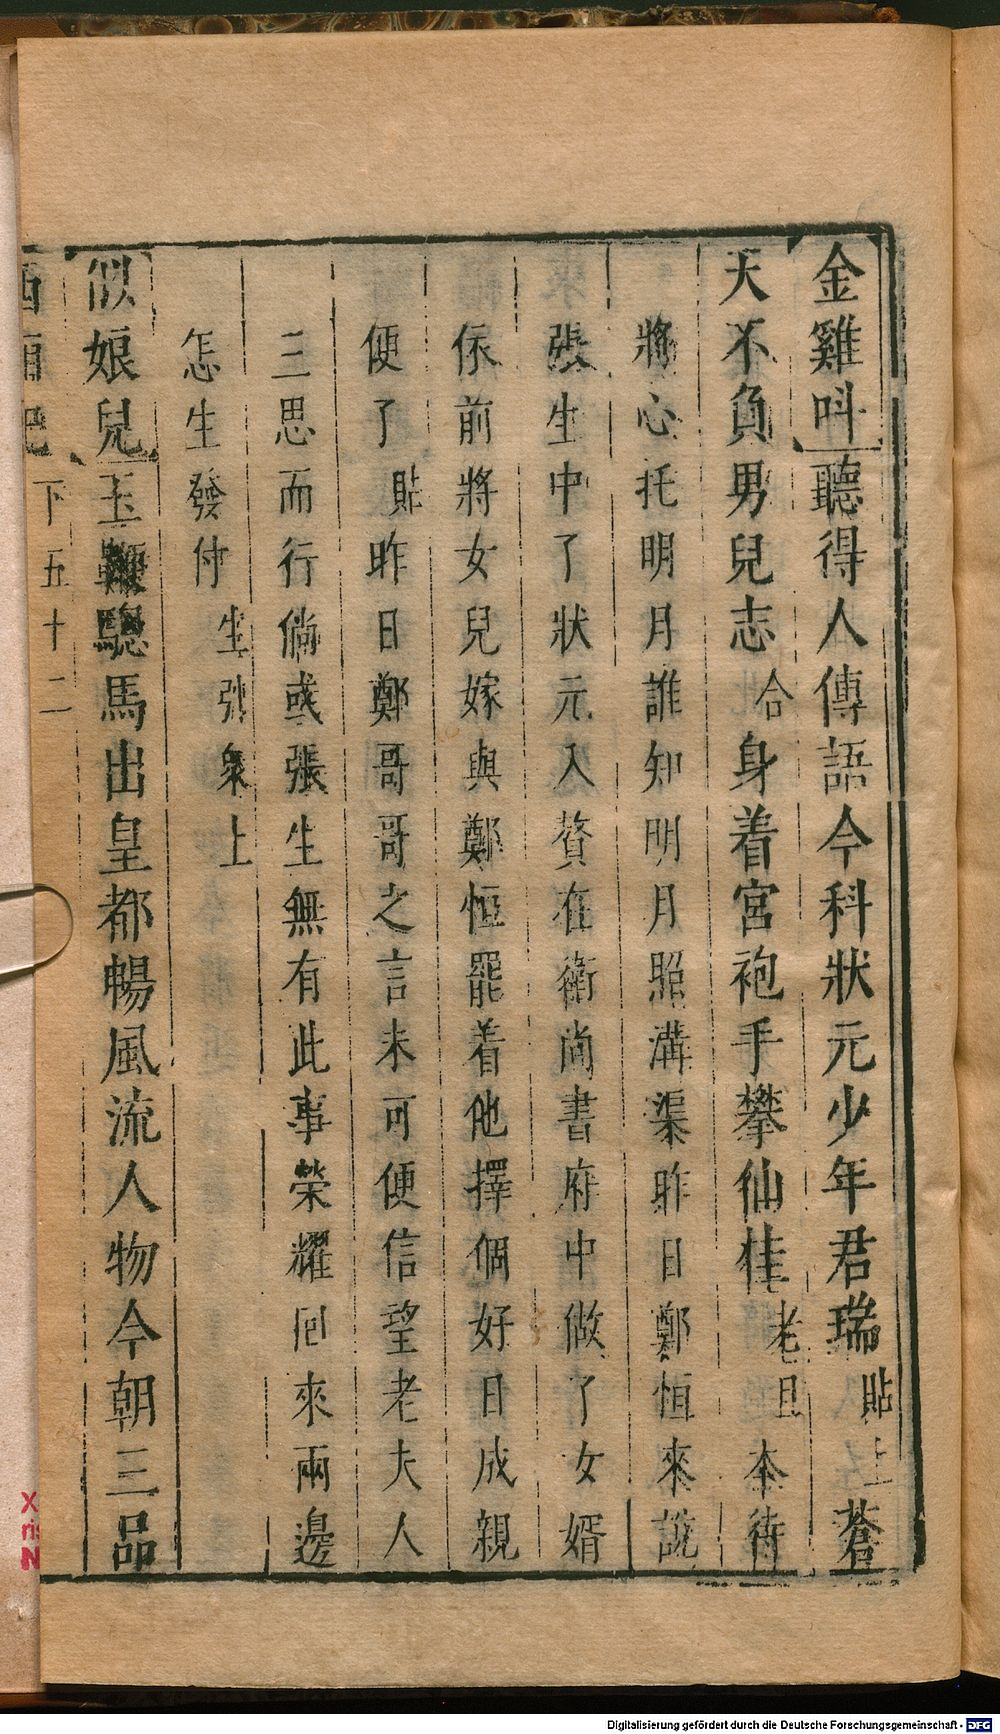 金雞呌聽得人傳語今科狀元少年君瑞貼上蒼
天不負男兒志合身着宮袍手攀仙桂老旦本待
將心托明月誰知明月照溝渠昨日鄭恒來說
張生中了狀元入贅在衛尚書府中做了女婿
依前將女兒嫁與鄭恒罷着他擇個好日成親
便了貼昨日鄭哥哥之言未可便信望老夫人
三思而行倘或張生無有此事榮耀回來兩邊
怎生發付生引衆上
似娘兒玉鞭驄馬出皇都暢風流人物今朝三品
西廂記 下 五十二
Digitalisierung gefördert durch die Deutsche Forschungsgemeinschaft - DFG